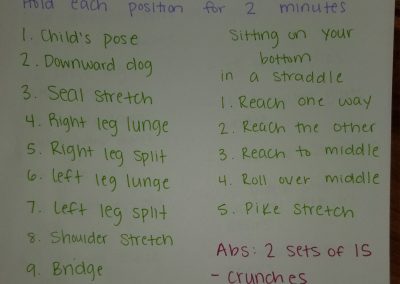 Hold each position for 2 minutes
1. Child's pose
2. Downward dog
3. Seal stretch
4. Right leg lunge
5. Right leg split
6. Left leg lunge
7. Left leg split
8. Shoulder stretch
9. Bridge
Sitting on your
bottom
in a straddle
1. Reach one way
2. Reach the other
3. Reach to middle
4. Roll over middle
5. Pike stretch
Abs: 2 sets of 15
- crunches